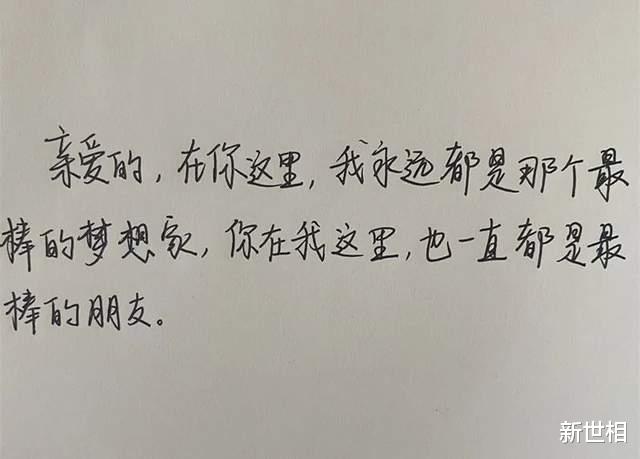 亲爱的，在你这里，我永远都是那个最
棒的梦想家，你在我这里，也一直都是最
棒的朋友。
新世相